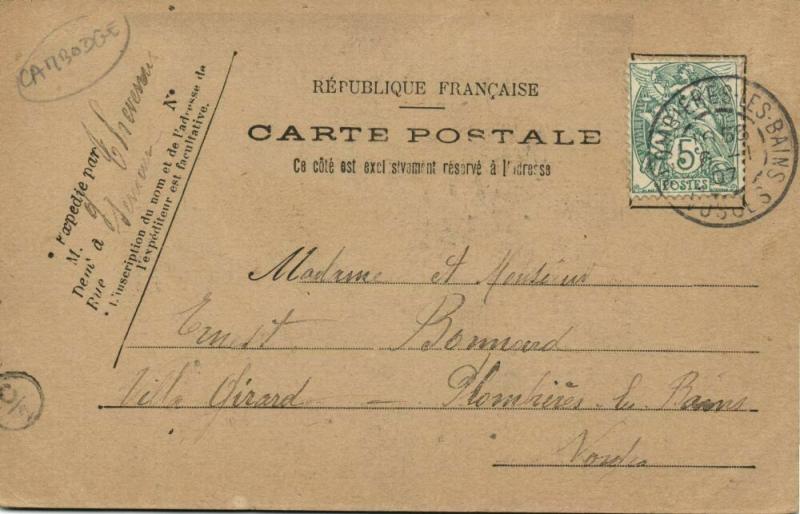 CAMBODGE
RÉPUBLIQUE FRANÇAISE
CARTE POSTALE
Ce côté est exclusivement réservé à l'adresse
Expédié par
M. J Thevenin
Dem't à
Rue
N°
L'inscription du nom et de l'adresse de
l'expéditeur est facultative.
5c
POSTES
PLOMBIERES-LES-BAINS
VOSGES
Madame et Monsieur
Ernest Bonnard
Villa Girard - Plombières-les Bains
Vosges